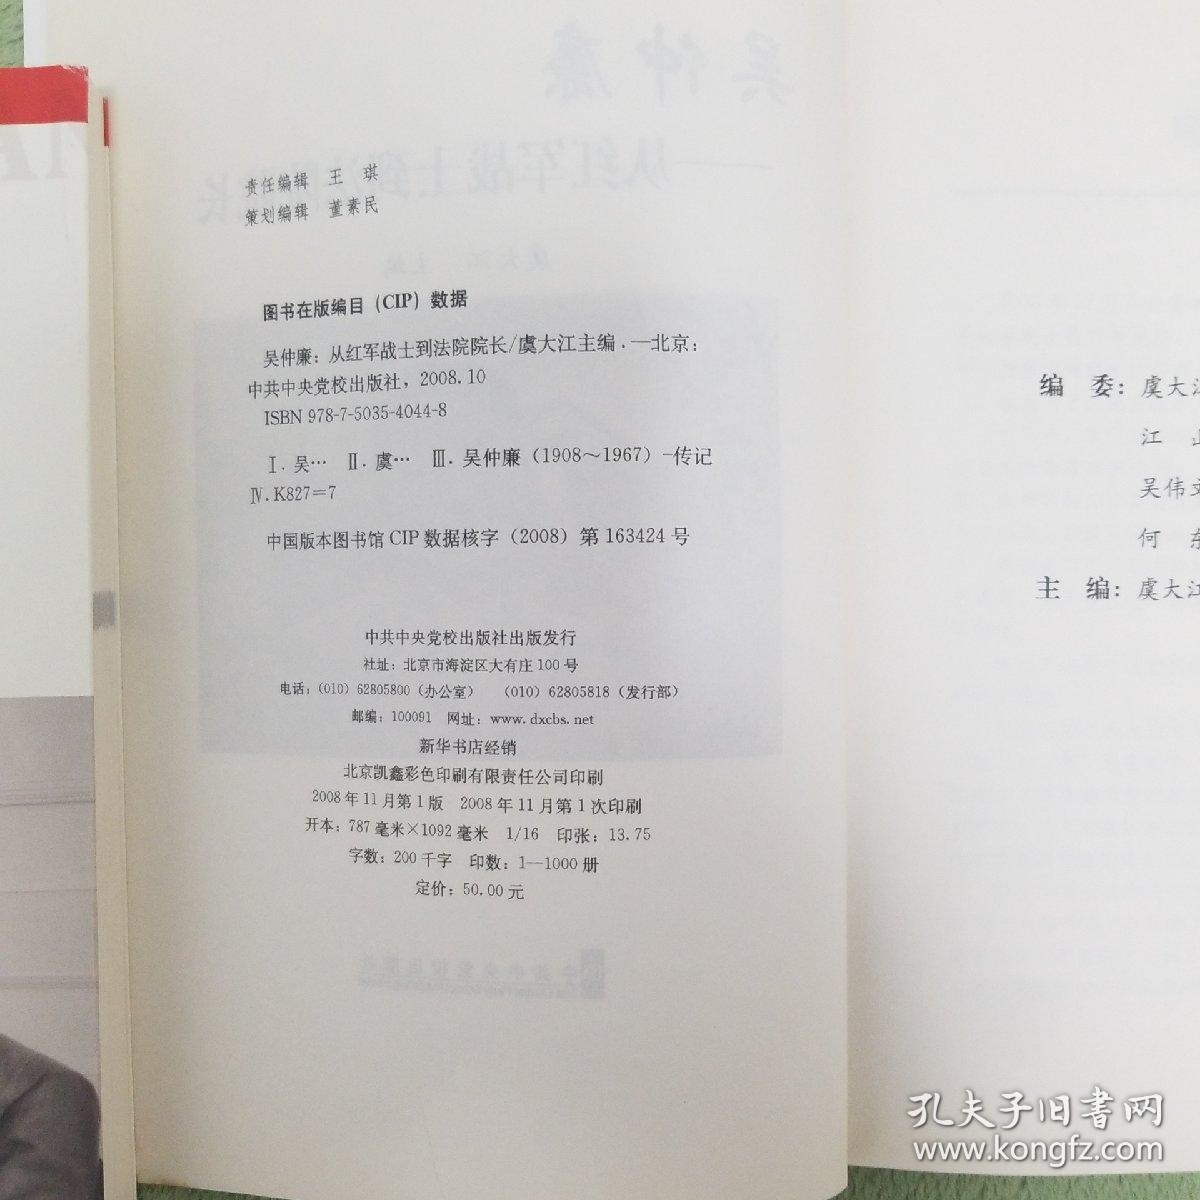 责任编辑 王 琪
策划编辑 董素民
图书在版编目(CIP)数据
吴仲廉：从红军战士到法院院长/虞大江主编．—北京：
中共中央党校出版社，2008.10
ISBN 978-7-5035-4044-8
Ⅰ．吴… Ⅱ．虞… Ⅲ．吴仲廉（1908～1967）-传记
Ⅳ．K827＝7
中国版本图书馆 CIP 数据核字（2008）第 163424 号
中共中央党校出版社出版发行
社址：北京市海淀区大有庄 100 号
电话：(010) 62805800（办公室） (010) 62805818（发行部）
邮编：100091 网址：www.dxcbs.net
新华书店经销
北京凯鑫彩色印刷有限责任公司印刷
2008 年 11 月第 1 版 2008 年 11 月第 1 次印刷
开本：787 毫米×1092 毫米 1/16 印张：13.75
字数：200 千字 印数：1—1000 册
定价：50.00 元
编 委：虞大江
江
吴伟
何
主 编：虞大江
孔夫子旧书网
www.kongfz.com